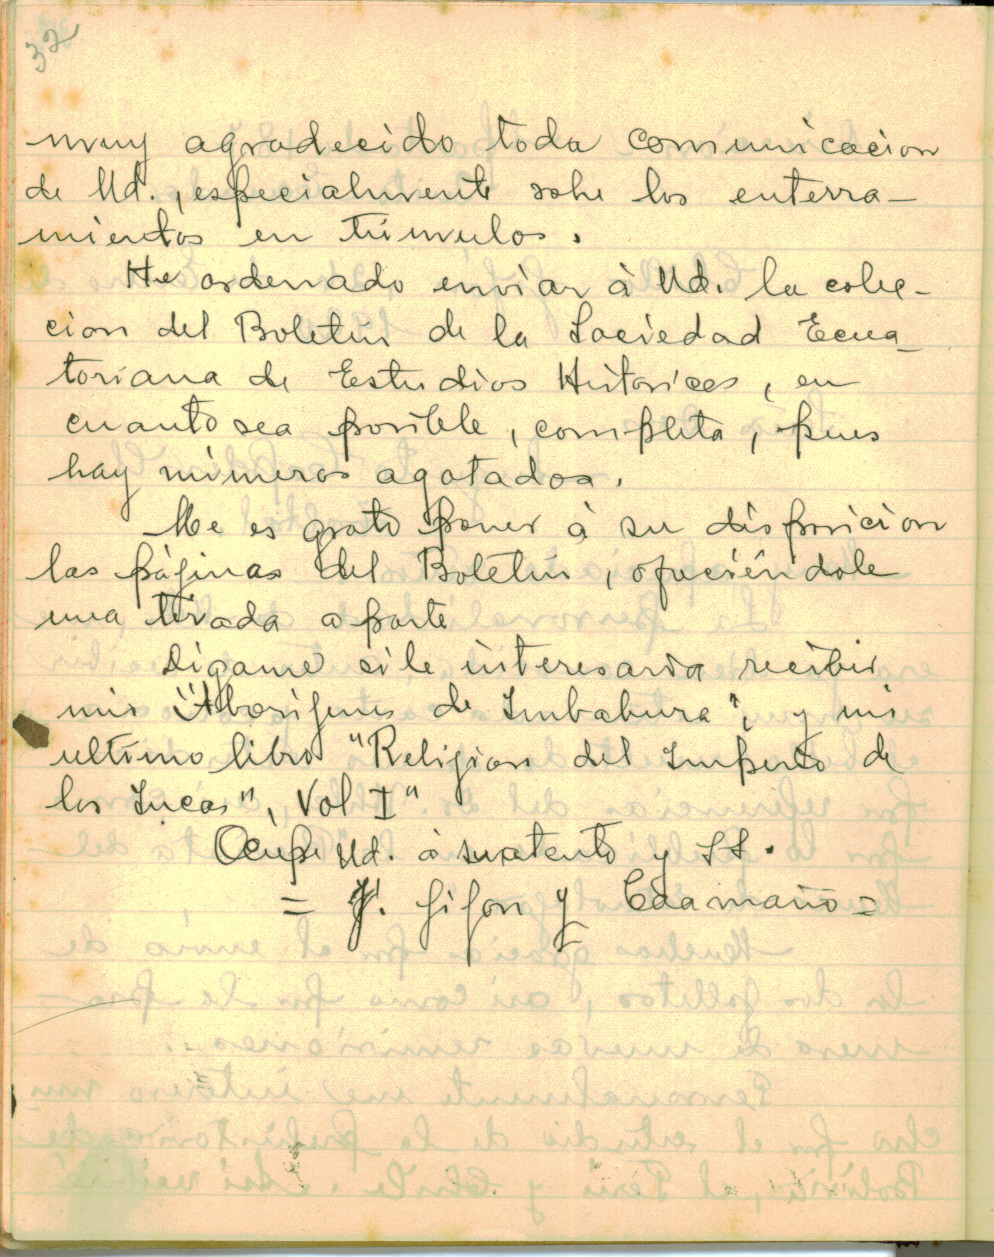 32
muy agradecido toda comunicacion
de Ud., especialmente sobre los enterra-
mientos en túmulos.
He ordenado enviar à Ud. la colec-
cion del Boletín de la Sociedad Ecua-
toriana de Estudios Historicos, en
cuanto sea posible, completa, pues
hay números agotados.
Me es grato poner à su disposicion
las páginas del Boletin, ofreciéndole
una tirada aparte
Dígame si le interesaria recibir
mis "Aborígenes de Imbabura", y mi
ultimo libro "Religion del Imperio de
los Incas", Vol I"
Ocupe Ud. à su atento y SS.
= J. Jijon y Caamaño =